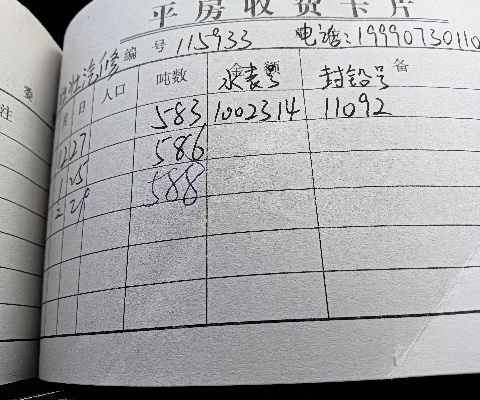 平房收费卡片
汽修 编号 115933 电话:19990730110
委
注
月 日 人口 吨数 水表号 封铅号 备
12 27 583 1002314 11092
1 25 586
2 29 588